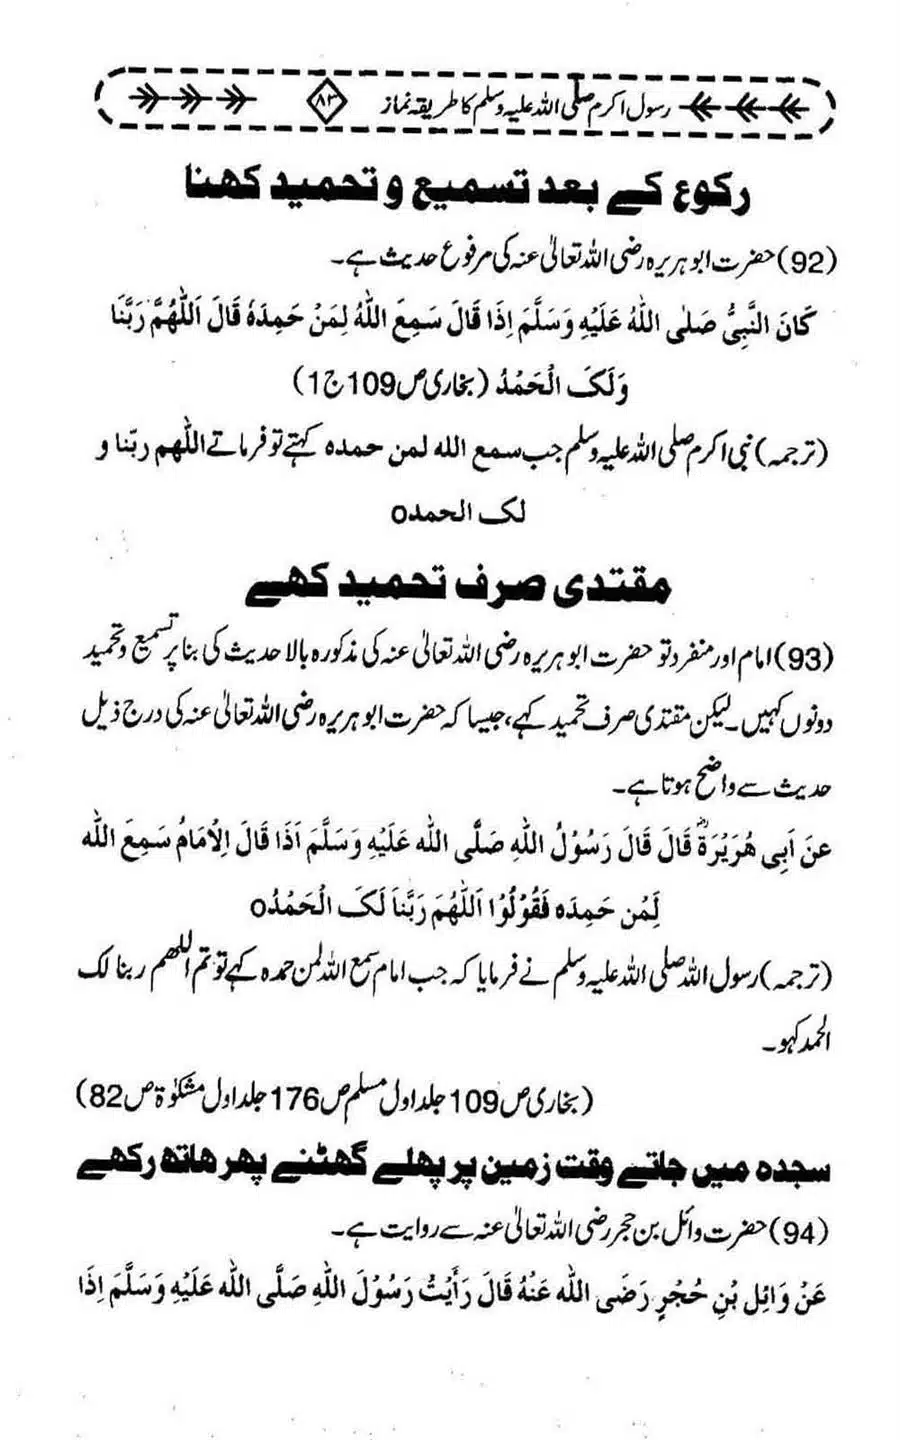 رسول اکرم صلی اللہ علیہ وسلم کا طریقہ نماز ۸۳
رکوع کے بعد تسمیع و تحمید کہنا
(92) حضرت ابو ہریرہ رضی اللہ تعالیٰ عنہ کی مرفوع حدیث ہے۔
کَانَ النَّبِیُّ صَلٰی اللّٰہُ عَلَیْہِ وَسَلَّمَ اِذَا قَالَ سَمِعَ اللّٰہُ لِمَنْ حَمِدَہٗ قَالَ اَللّٰھُمَّ رَبَّنَا
وَلَکَ الْحَمْدُ (بخاری ص 109 ج 1)
(ترجمہ) نبی اکرم صلی اللہ علیہ وسلم جب سمع اللہ لمن حمدہ کہتے تو فرماتے اللھم ربّنا و
لک الحمدo
مقتدی صرف تحمید کہے
(93) امام اور منفرد تو حضرت ابو ہریرہ رضی اللہ تعالیٰ عنہ کی مذکورہ بالا حدیث کی بنا پر تسمیع و تحمید
دونوں کہیں۔ لیکن مقتدی صرف تحمید کہے، جیسا کہ حضرت ابو ہریرہ رضی اللہ تعالیٰ عنہ کی درج ذیل
حدیث سے واضح ہوتا ہے۔
عنَ اَبِی ھُرَیْرَۃَؓ قَالَ قَالَ رَسُوْلُ اللّٰہِ صَلَّی اللّٰہ عَلَیْہِ وَسَلَّمَ اَذَا قَالَ اِلْاِمَامُ سَمِعَ اللّٰہ
لِمُن حَمِدَہ فَقُوْلُوْا اَللّٰھُمَ رَبَّناَ لَکَ الْحَمْدُo
(ترجمہ) رسول اللہ صلی اللہ علیہ وسلم نے فرمایا کہ جب امام سمع اللہ لمن حمدہ کہے تو تم اللھم ربنا لک
الحمد کہو۔
(بخاری ص 109 جلد اول مسلم ص 176 جلد اول مشکوٰۃ ص 82)
سجدہ میں جاتے وقت زمین پر پہلے گھٹنے پھر ھاتھ رکھے
(94) حضرت وائل بن حجر رضی اللہ تعالیٰ عنہ سے روایت ہے۔
عَنْ وَائِلِ بْنِ حُجْرٍ رَضَی اللّٰہ عَنْہُ قَالَ رَأَیْتُ رَسُوْلَ اللّٰہِ صَلَّی اللّٰہ عَلَیْہِ وَسَلَّمَ اِذَا